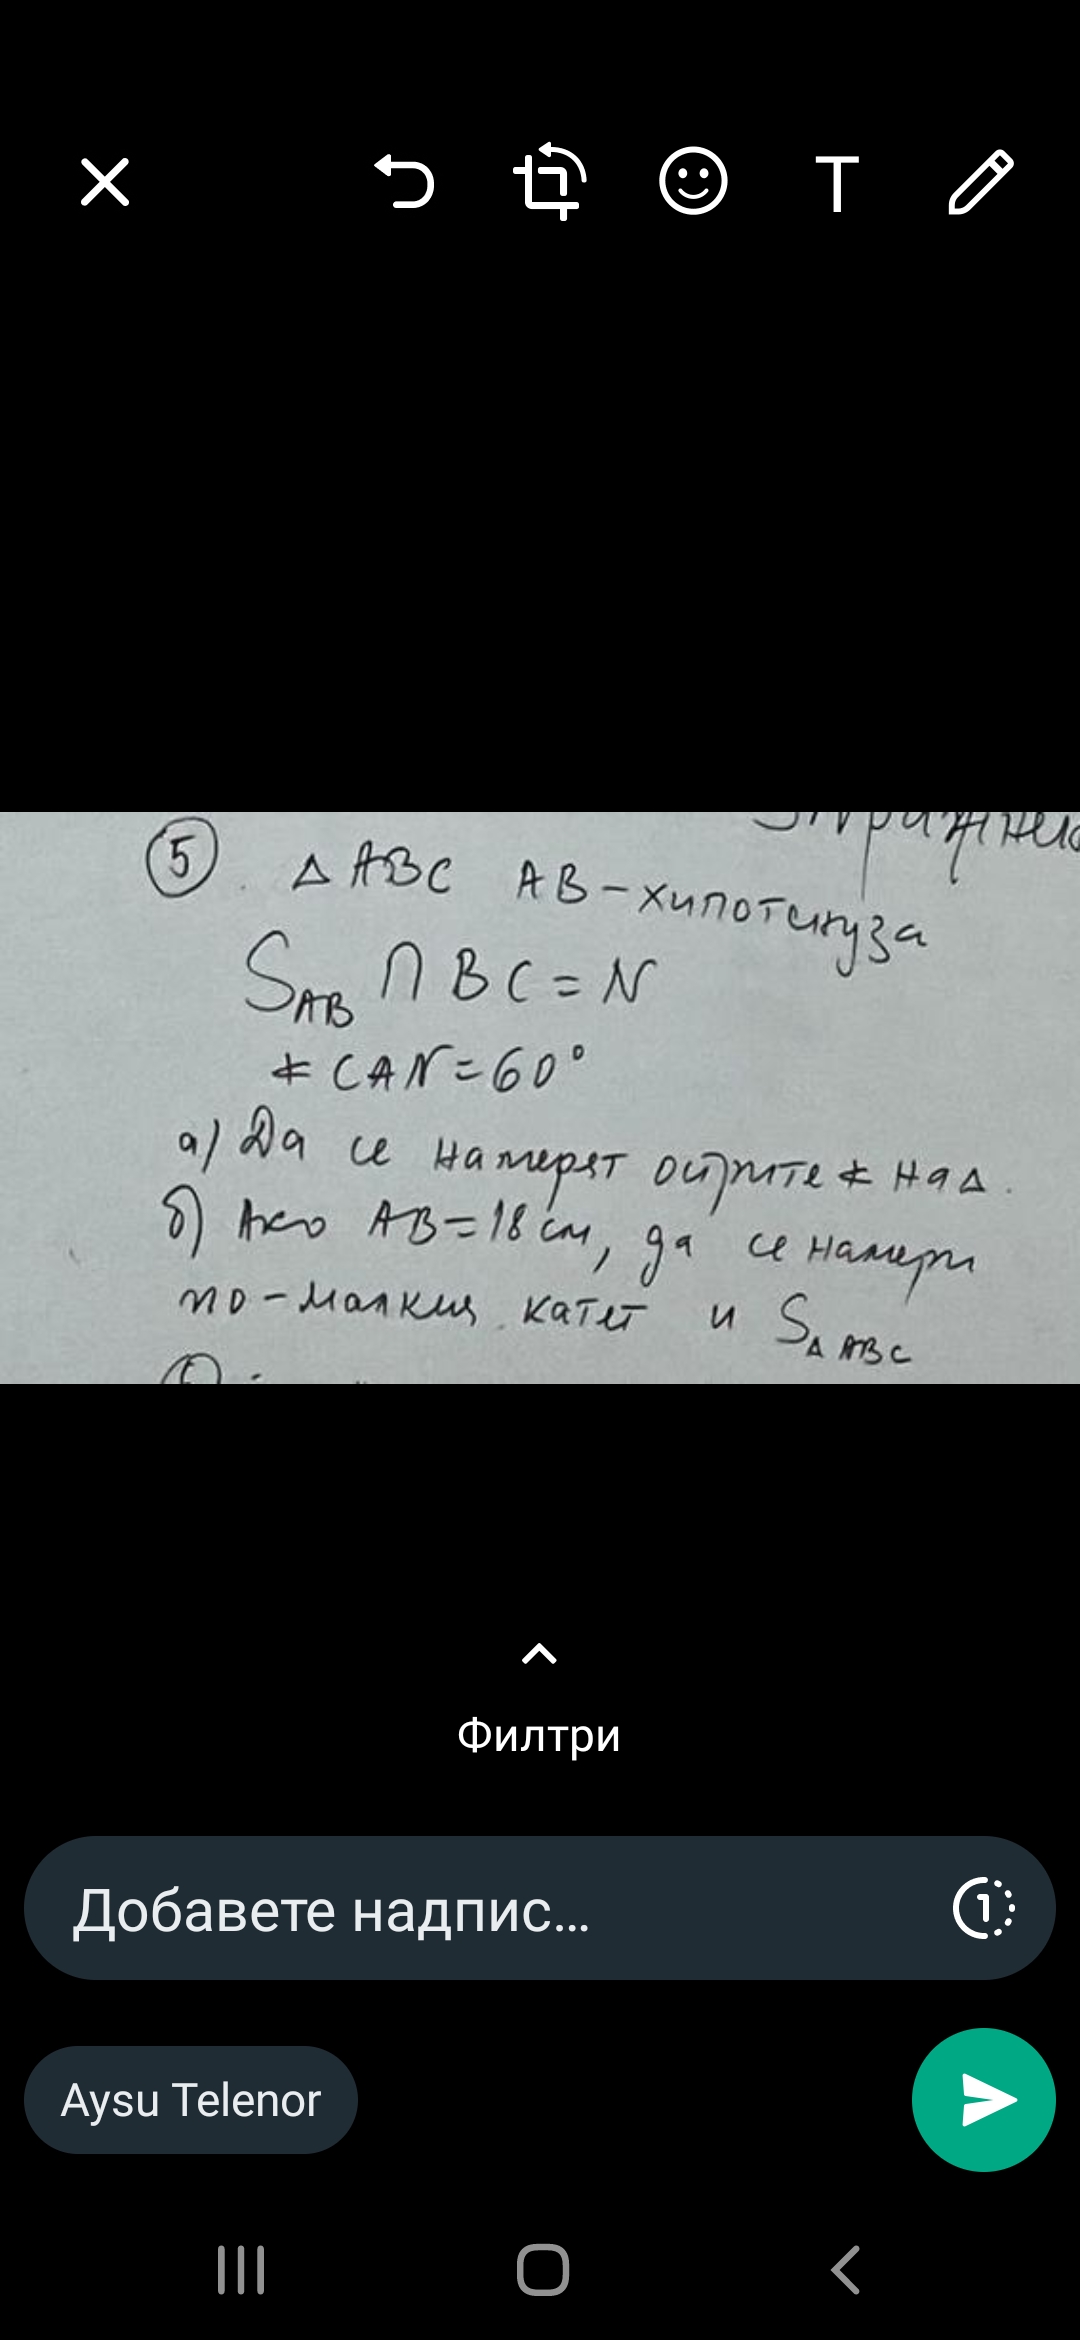 T
Упражнен
⑤. △ ABC AB – хипотенуза
S_AB ∩ BC = N
∢ CAN = 60°
а) Да се намерят острите ∢ на △.
б) Ако AB = 18 см, да се намери
по-малкия катет и S_△ABC
Филтри
Добавете надпис...
1
Aysu Telenor